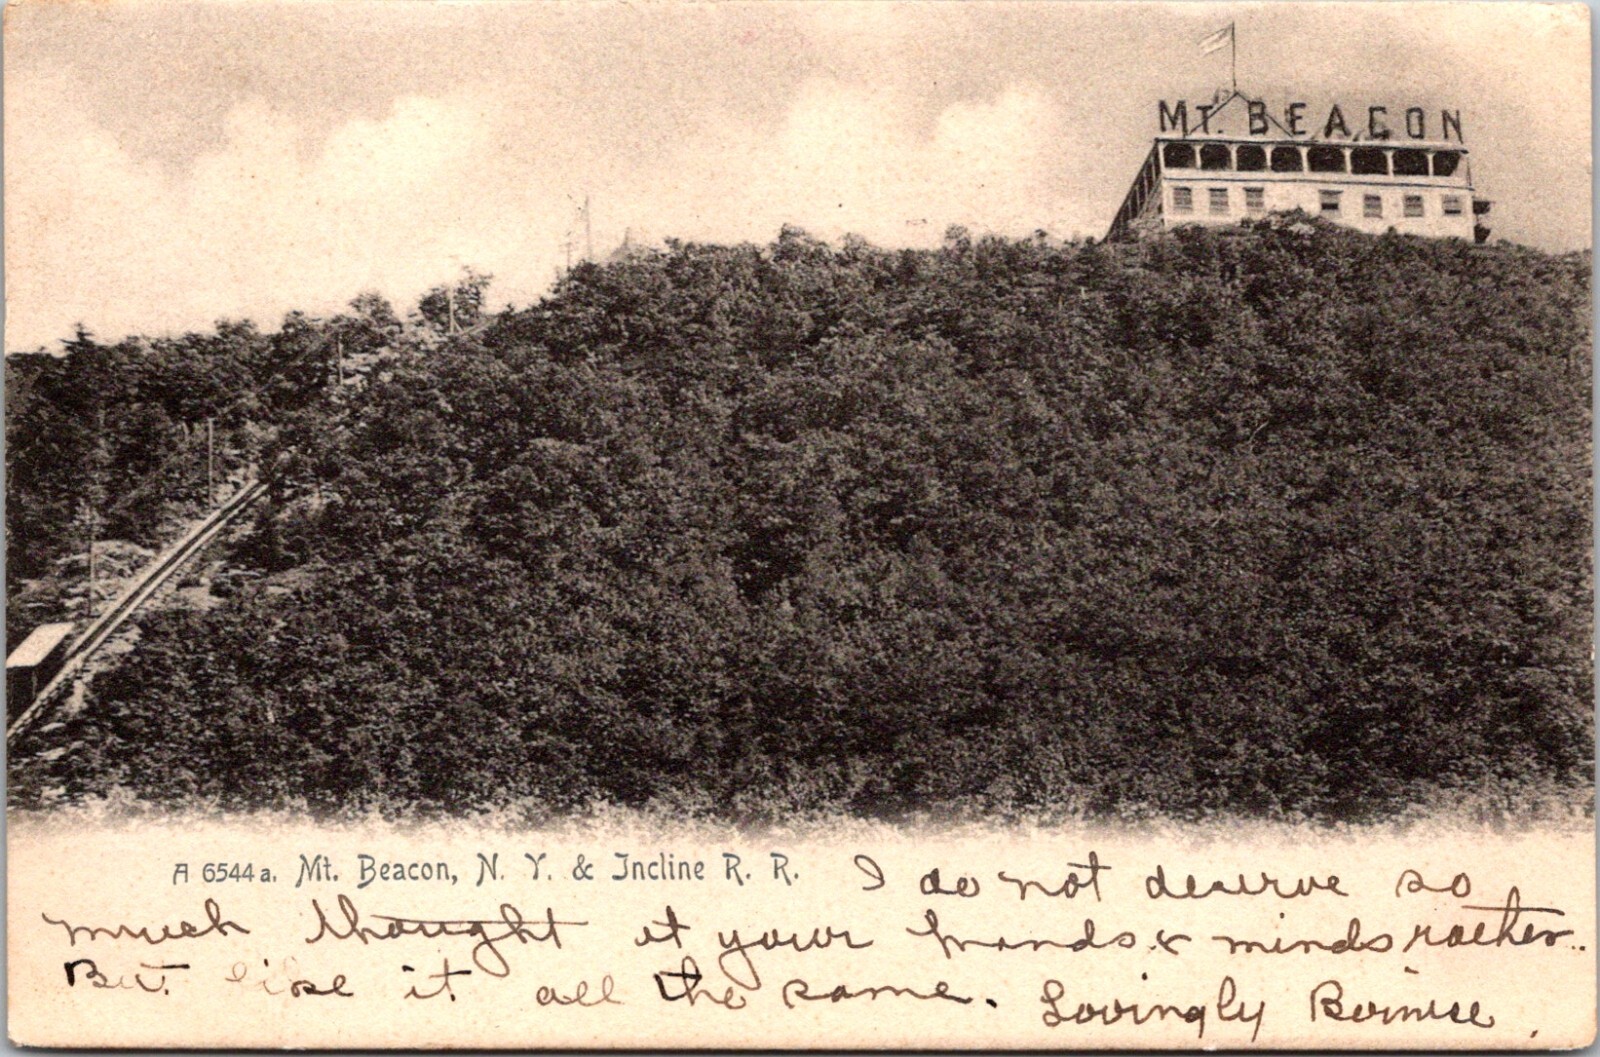 MT. BEACON
A 6544 a. Mt. Beacon, N. Y. & Incline R. R. I do not deserve so
much thought at your hands & minds rather.
But like it all the same. Lovingly Bernice.